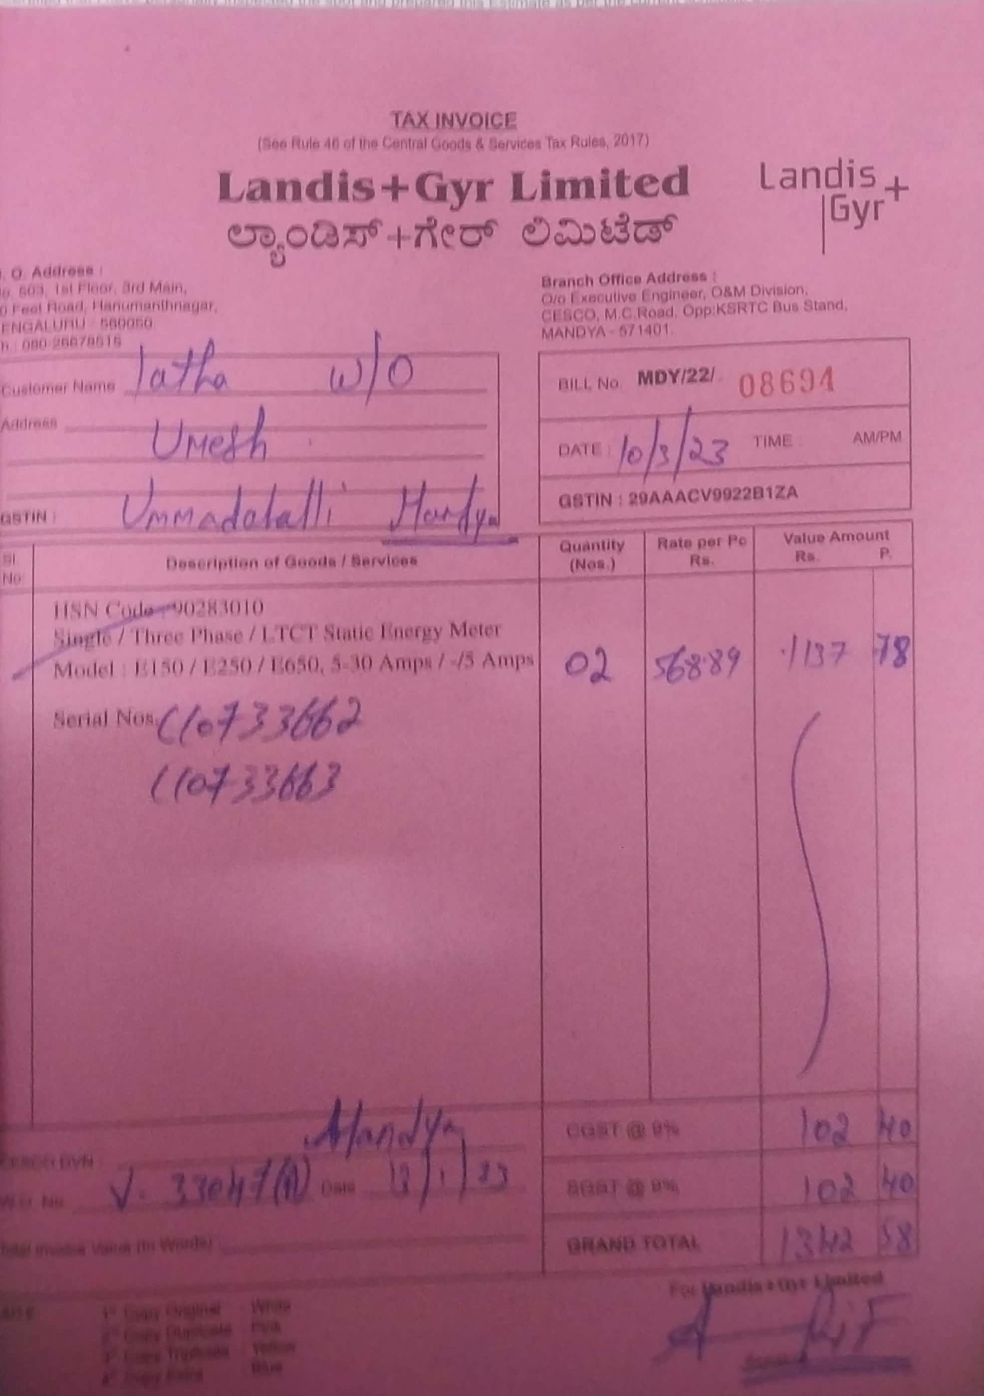 TAX INVOICE
(See Rule 46 of the Central Goods & Services Tax Rules, 2017)
Landis+Gyr Limited
ಲ್ಯಾಂಡಿಸ್+ಗೇರ್ ಲಿಮಿಟೆಡ್
Landis
Gyr+
. O. Address :
603, 1st Floor, 3rd Main,
Feet Road, Hanumanthnagar,
ENGALURU - 560050
h : 080-26678515
Branch Office Address :
O/o Executive Engineer, O&M Division,
CESCO, M.C.Road, Opp:KSRTC Bus Stand,
MANDYA - 571401.
Customer Name latha w/o
Address Umesh
GSTIN : Ummadahalli Mandya
BILL No. MDY/22/ 08694
DATE : 10/3/23 TIME : AM/PM
GSTIN : 29AAACV9922B1ZA
Sl. No. Description of Goods / Services Quantity (Nos.) Rate per Pc Rs. Value Amount Rs. P.
HSN Code : 90283010
Single / Three Phase / LTCT Static Energy Meter
Model : E150 / E250 / E650, 5-30 Amps / -/5 Amps 02 568.89 1137 78
Serial Nos. 110733662
110733663
CGST @ 9% 102 40
Mandya
CESCO DVN :
Date SGST @ 9% 102 40
Total Invoice Value (In Words) GRAND TOTAL 1342 58
For Landis+Gyr Limited
1st Copy Original : White
2nd Copy Duplicate : Pink
3rd Copy Triplicate : Yellow
4th Copy Extra : Blue